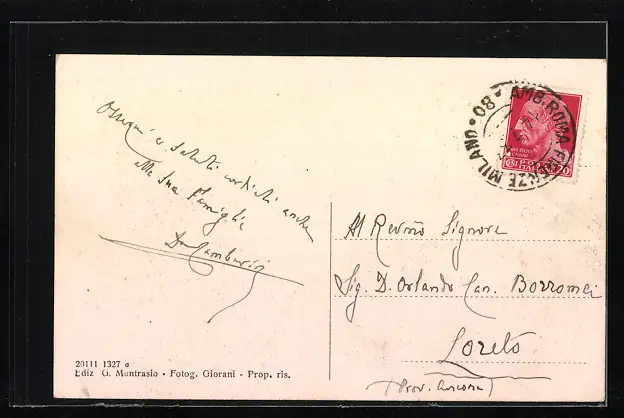 Ossequi e saluti cordiali anche
alla Sua Famiglia
AMB. ROMA FIRENZE MILANO • 08 •
20
Al Revmo Signore
Sig. D. Orlando Can. Borromei
Loreto
(Prov. Ancona)
20111 1327 a
Ediz G. Montrasio - Fotog. Giorani - Prop. ris.